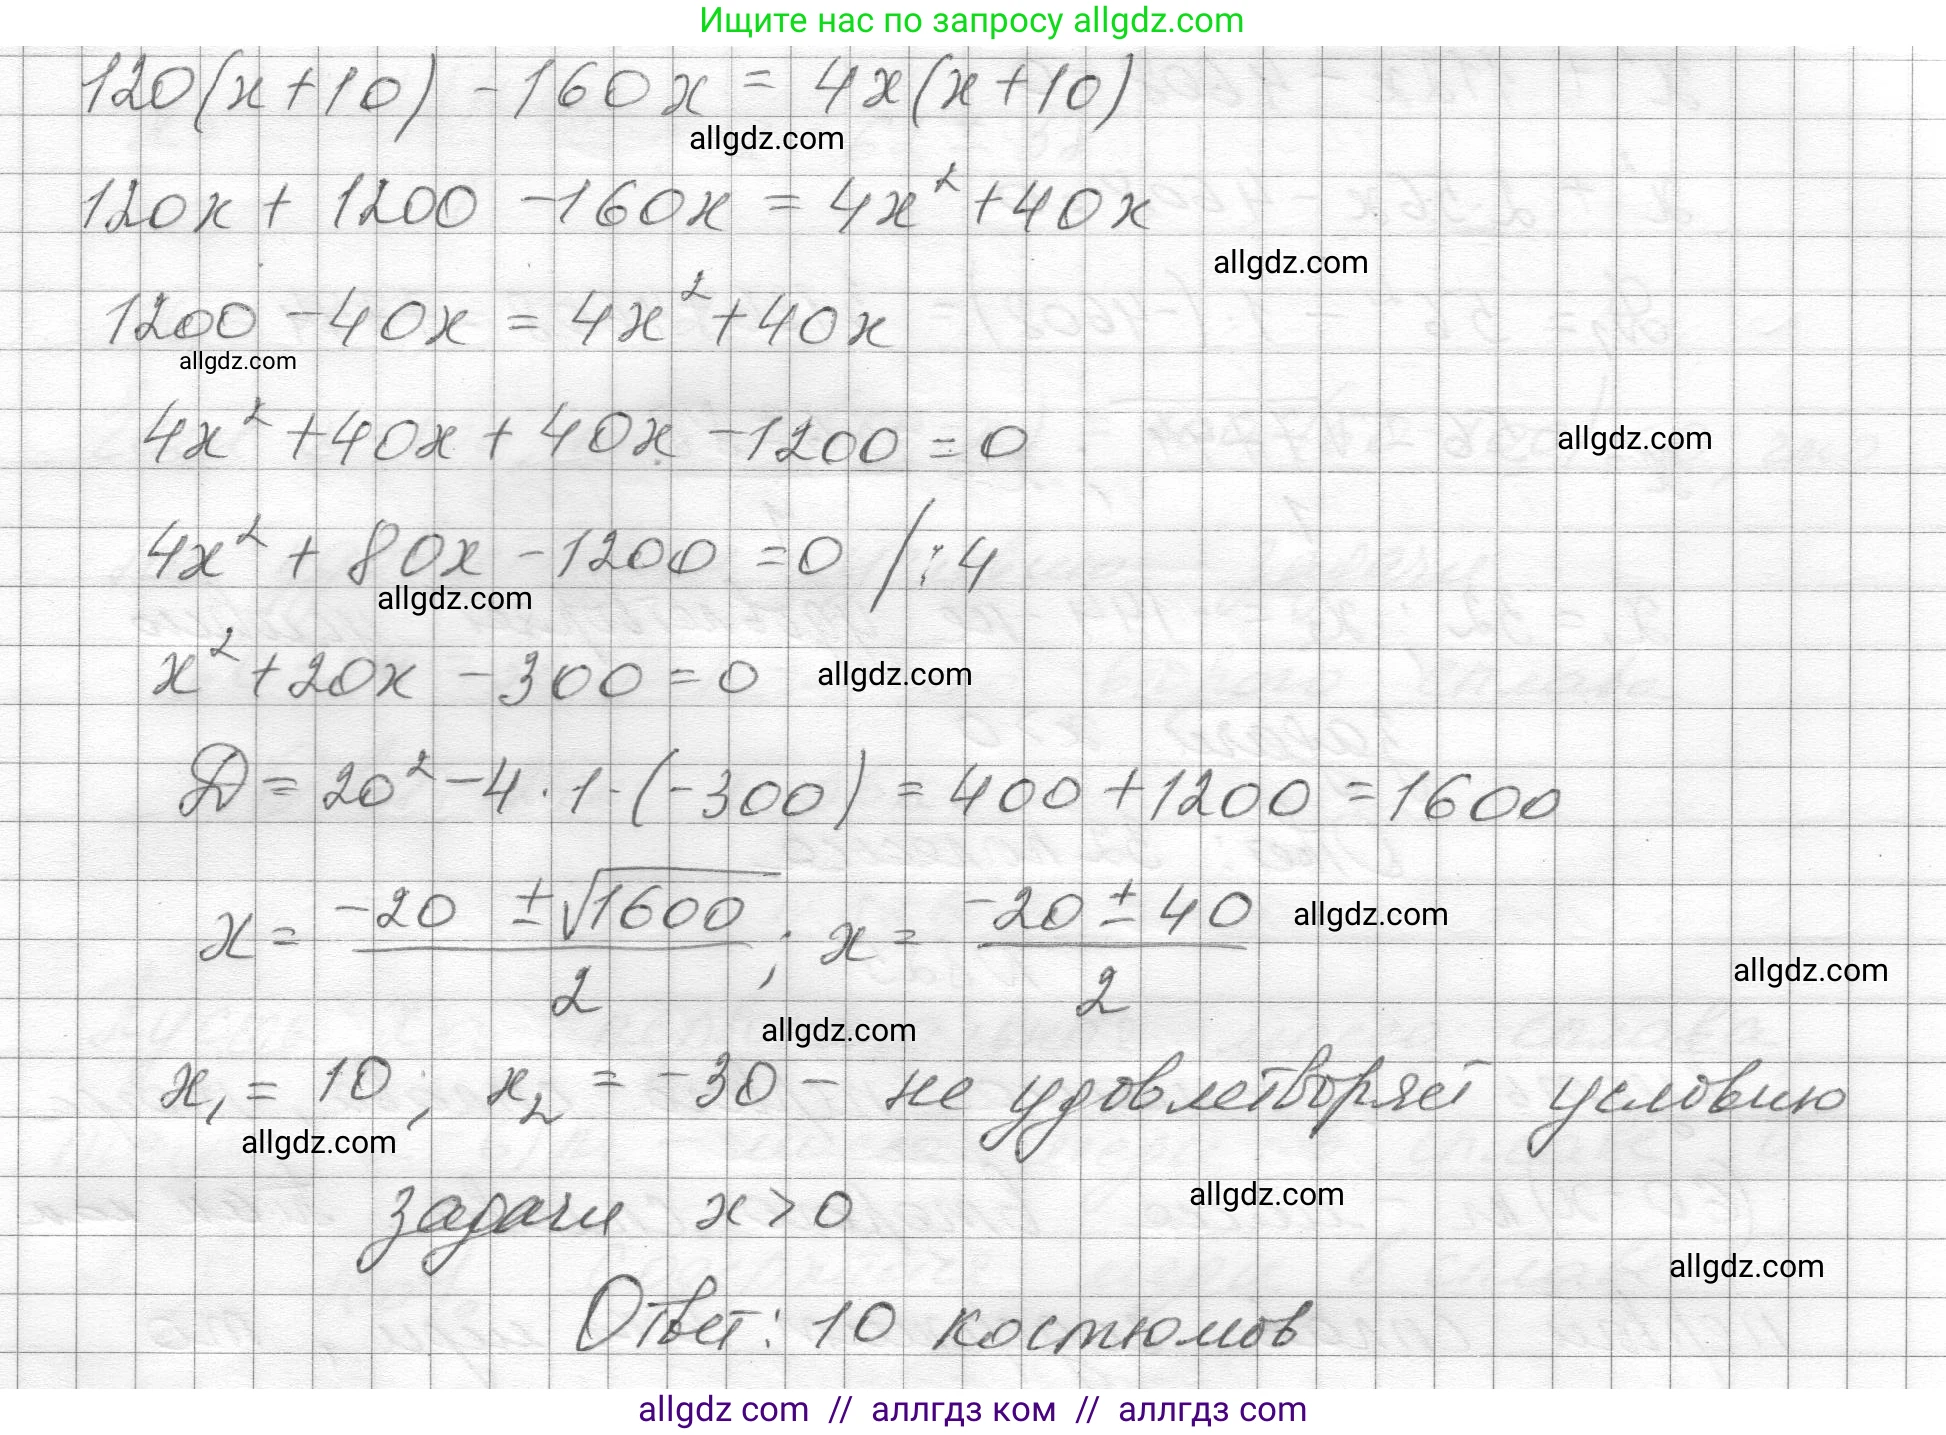 Ищите нас по запросу allgdz.com
120(x+10) - 160x = 4x(x+10)
allgdz.com
120x + 1200 - 160x = 4x² + 40x
allgdz.com
1200 - 40x = 4x² + 40x
allgdz.com
4x² + 40x + 40x - 1200 = 0
allgdz.com
4x² + 80x - 1200 = 0 / : 4
allgdz.com
x² + 20x - 300 = 0
allgdz.com
D = 20² - 4 · 1 · (-300) = 400 + 1200 = 1600
x = (-20 ± √1600) / 2 ; x = (-20 ± 40) / 2
allgdz.com
allgdz.com
allgdz.com
x₁ = 10 ; x₂ = -30 - не удовлетворяет условию
allgdz.com
задачи x > 0
allgdz.com
allgdz.com
Ответ: 10 костюмов
allgdz com // аллгдз ком // аллгдз com